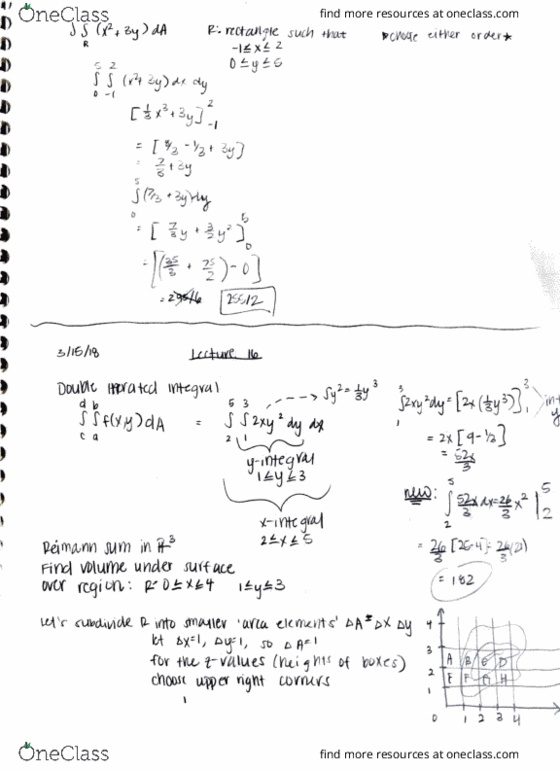 OneClass
find more resources at oneclass.com
∫∫ (x²+3y) dA R: rectangle such that *choose either order*
R -1≤x≤2
0≤y≤5
5 2
∫ ∫ (x²+3y) dx dy
0 -1
[⅓x³+3y]²₋₁
= [8/3 - -1/3 + 3y]
5
∫ (7/3 + 3y) dy
0
= [7/3 y + 3/2 y²]⁵₀
= [(35/3 + 75/2) - 0]
255/2
3/15/18 Lecture 16
Double Iterated Integral
d b
∫ ∫ f(x,y) dA = ∫ ∫ 2xy² dy dx
c a
5 3
2 1
∫y² = ⅓y³
y-integral
1≤y≤3
x-integral
2≤x≤5
∫2xy²dy = [2x(⅓y³)]³₁
= 2x[9-1/3]
= 52x/3
new:
∫ 52x/3 dx = 26/3 x² |⁵₂
= 26/3 [25-4] = 26/3(21)
= 182
Reimann sum in R³
Find volume under surface
over region: R= 0≤x≤4 1≤y≤3
Let's subdivide R into smaller 'area elements' ΔA = Δx Δy
let Δx=1, Δy=1, so ΔA=1
for the z-values (heights of boxes)
choose upper right corners
4
3
A B C D
2
E F G H
1
0 1 2 3 4
OneClass
find more resources at oneclass.com